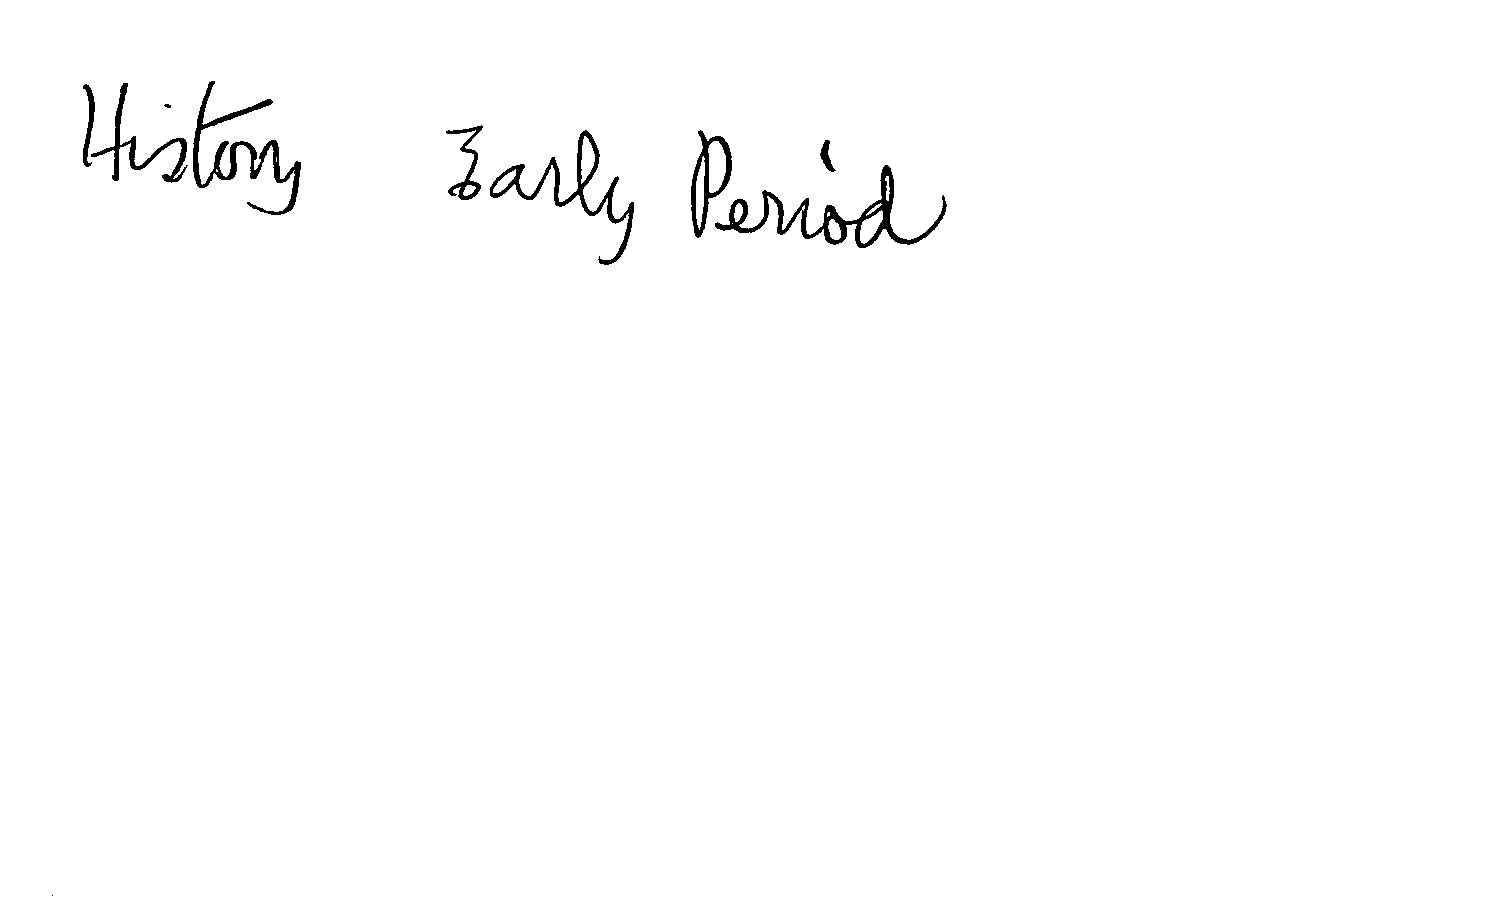 History Early Period